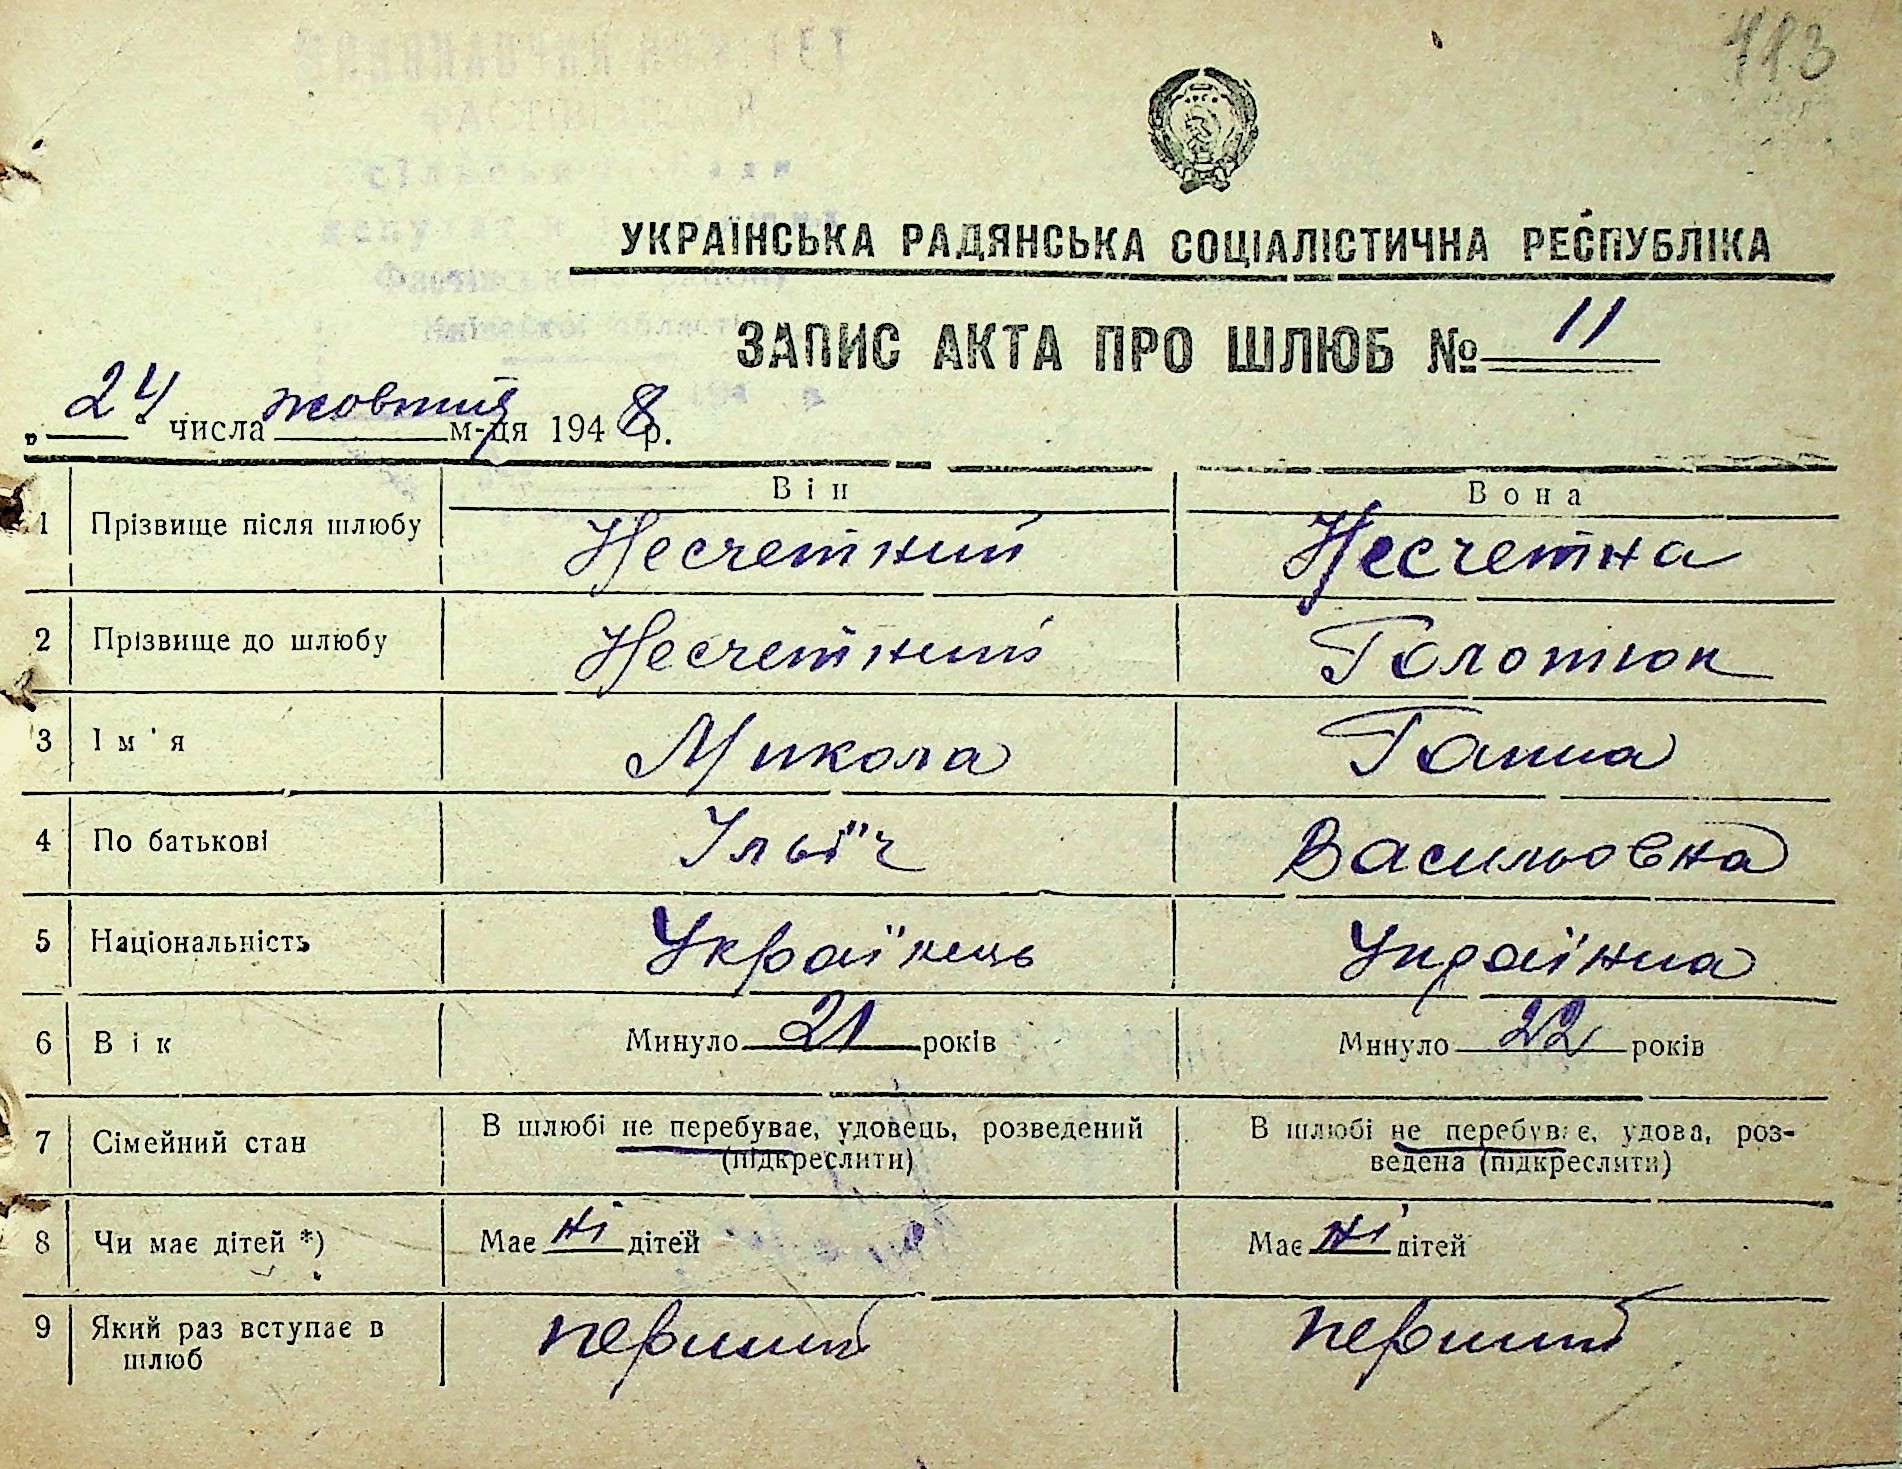 113
УКРАЇНСЬКА РАДЯНСЬКА СОЦІАЛІСТИЧНА РЕСПУБЛІКА
ЗАПИС АКТА ПРО ШЛЮБ № 11
„24“ числа жовтня м-ця 1948 р.
Він Вона
1 Прізвище після шлюбу Несчетний Несчетна
2 Прізвище до шлюбу Несчетний Голотюк
3 Ім'я Микола Ганна
4 По батькові Ільїч Васильовна
5 Національність Українець Українка
6 Вік Минуло 21 років Минуло 22 років
7 Сімейний стан В шлюбі не перебуває, удовець, розведений В шлюбі не перебуває, удова, роз-
(підкреслити) ведена (підкреслити)
8 Чи має дітей *) Має ні дітей Має ні дітей
9 Який раз вступає в перший перший
шлюб